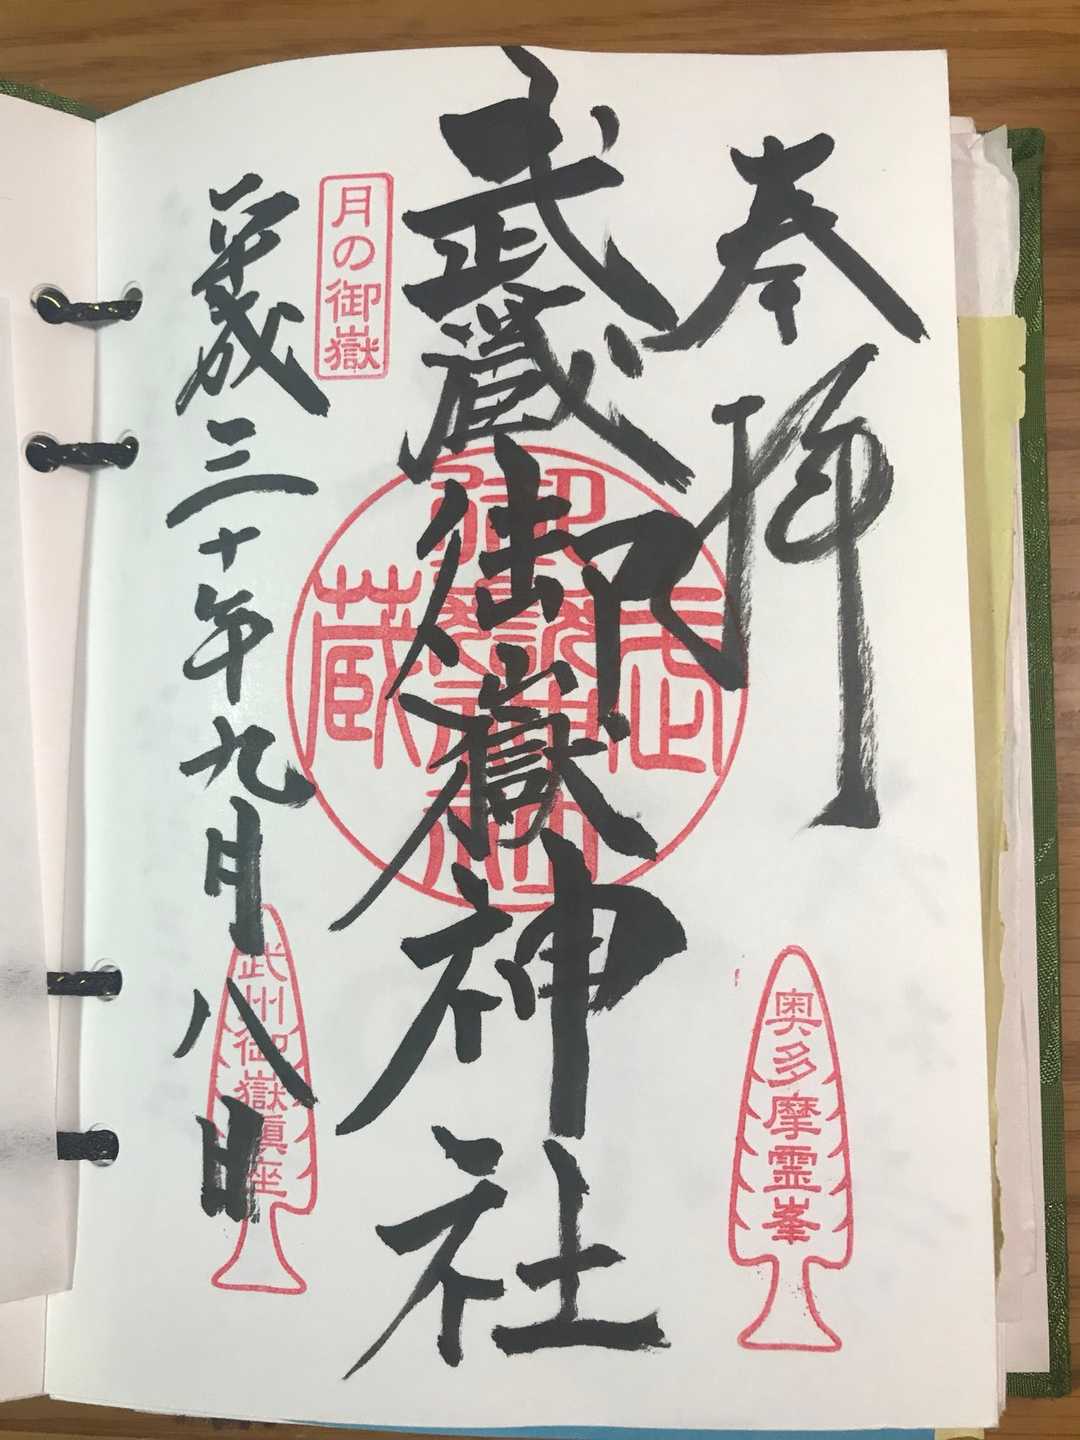 奉拝
奥多摩霊峯
武蔵御嶽神社
月の御嶽
平成三十年九月八日
武州御嶽鎮座